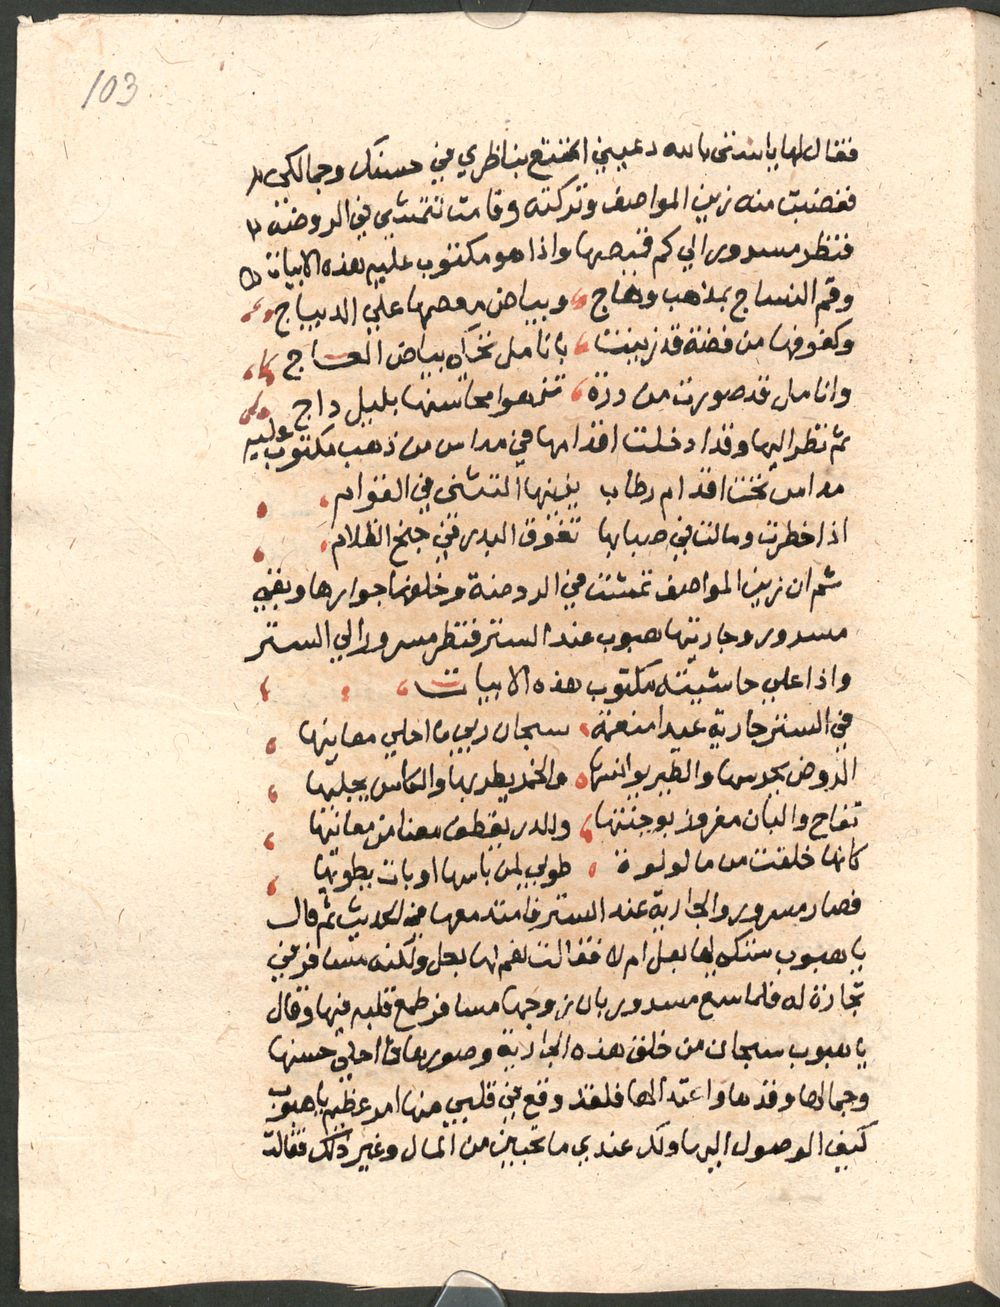 103
فقال لها ياستي بالله دعيني اتمتع بناظري في حسنك وجمالكي
فغضبت منه زين المواصف وتركته وقامت تتمشي في الروضة
فنظر مسرور الي كم قميصها واذا هو مكتوب عليه هذه الابيات
رقم النساج بمذهب وهاج وبياض معصمها علي الديباج
وكفوفها من فضة قد زينت بانامل تحكي بياض العاج
وانامل قد صورت من درة تزهوا محاسنها بليل داج
ثم نظر اليها وقد ادخلت اقدامها في مداس من ذهب مكتوب عليه
مداس تحت اقدام رطاب يزينها التثني في القوام
اذا خطرت ومالت في صباها تفوق البدر في جنح الظلام
ثم ان زين المواصف تمشت في الروضة وخلفها جوارها وبقي
مسرور وجاريتها هبوب عند الستر فنظر مسرور الي الستر
واذا علي حاشيته مكتوب هذه الابيات
في الستر جارية غيدا منعمة سبحان ربي ما احلي معانيها
الروض يحرسها والطير يوانسها والخمر يطربها والكاس يجليها
تفاح والبان مغروز بوجنتها والدر يقطف معنا من معانيها
كانها خلقت من ما لولوة طوبي لمن باسها او بات يطويها
فصار مسرور والجارية عند الستر وامتد معها في الحديث ثم قال
يا هبوب ستك لها بعل ام لا فقالت نعم لها بعل ولكنه مسافر في
تجارة له فلما سمع مسرور بان زوجها مسافر طمع قلبه فيها وقال
يا هبوب سبحان من خلق هذه الجارية وصورها ما احلي حسنها
وجمالها وقدها واعتدالها فلقد وقع في قلبي منها امر عظيم يا هبوب
كيف الوصول اليها ولك عندي ما تحبين من المال وغير ذلك فقالت